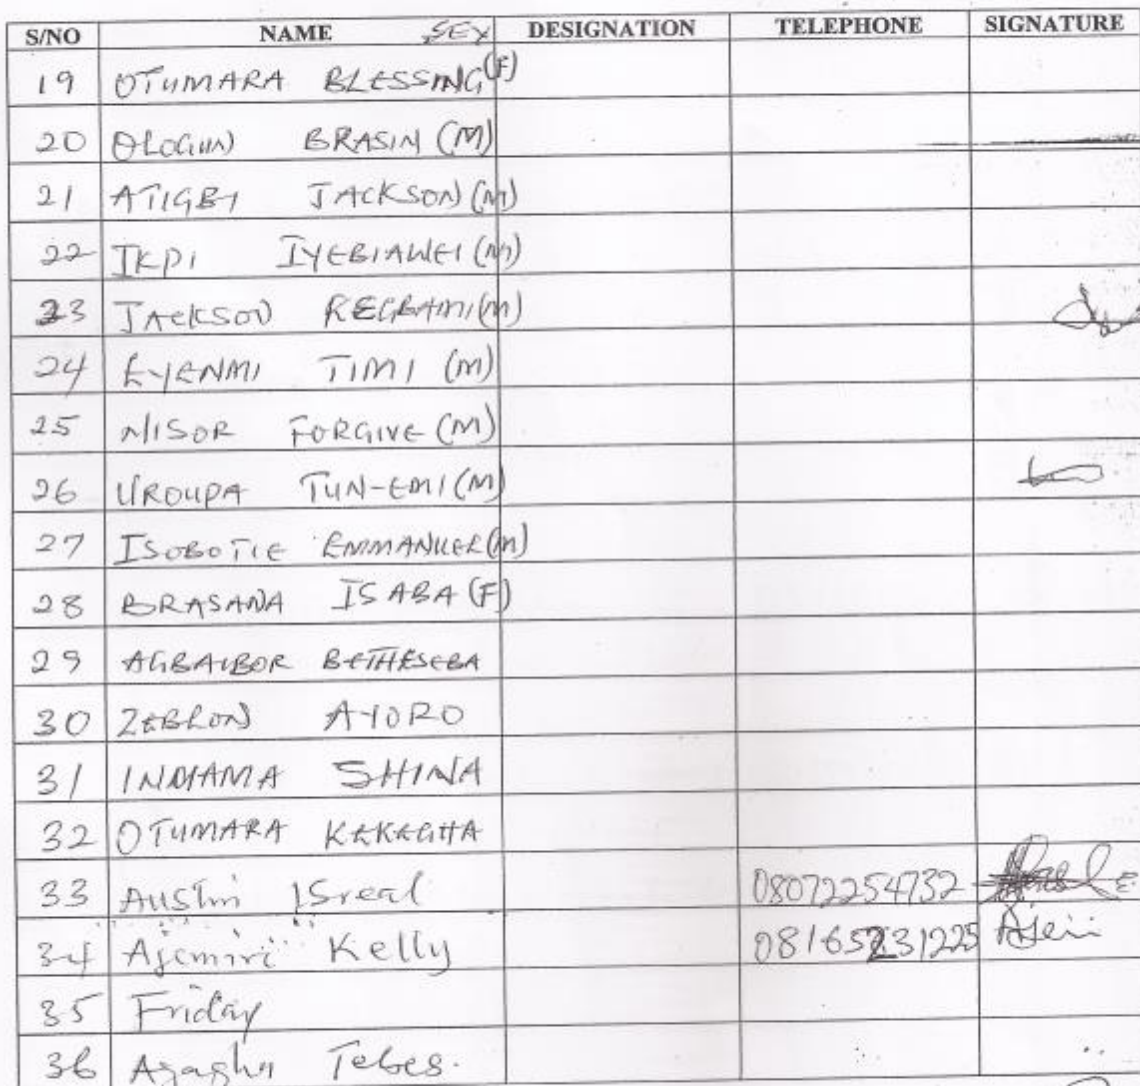 S/NO NAME SEX DESIGNATION TELEPHONE SIGNATURE
19 OTUMARA BLESSING (F)
20 OLOGUN BRASIN (M)
21 ATIGBI JACKSON (M)
22 IKPI IYEBIAWEI (M)
23 JACKSON REGBAMI (M)
24 EYENMI TIMI (M)
25 NISOR FORGIVE (M)
26 UROUPA TUN-EMI (M)
27 ISOBOTIE EMMANUEL (M)
28 BRASANA ISABA (F)
29 AGBAIBOR BETHESEBA
30 ZEBLON AYORO
31 INMAMA SHINA
32 OTUMARA KEKEGHA
33 Austin ISreal 08072254732
34 Ajemiri Kelly 081652231225
35 Friday
36 Tebes.